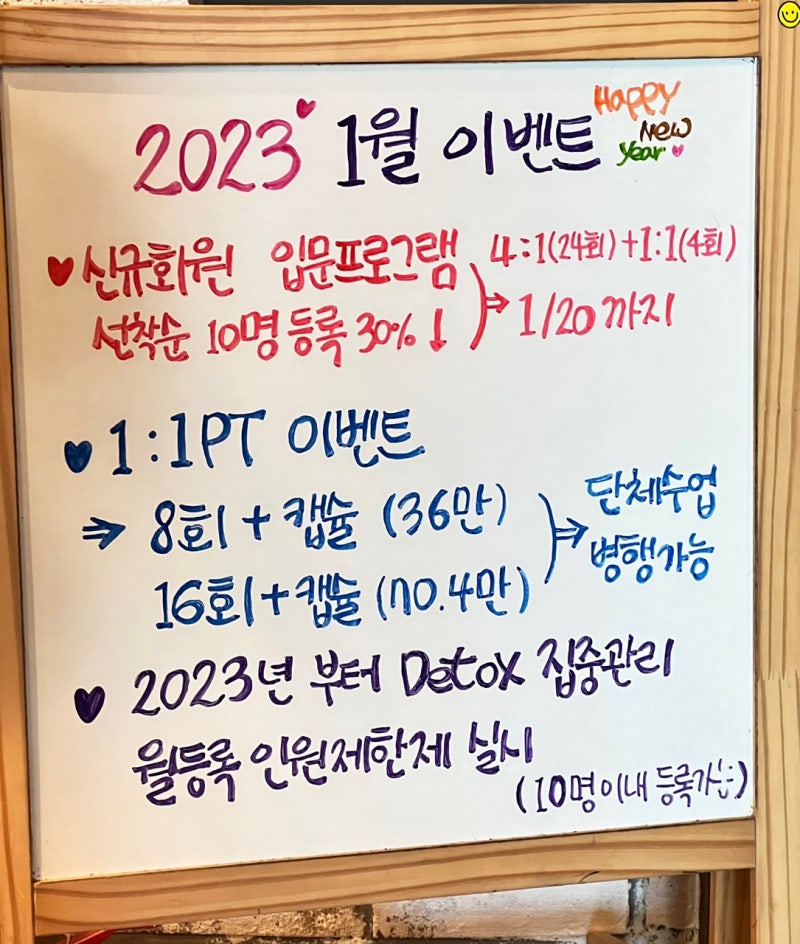 2023 1월 이벤트
Happy
New
Year
신규회원 입문프로그램
선착순 10명 등록 30% ↓
4:1(24회)+1:1(4회)
⇒ 1/20 까지
1:1 PT 이벤트
⇒ 8회 + 캡슐 (36만)
16회 + 캡슐 (70.4만)
⇒ 단체수업
병행가능
2023년 부터 Detox 집중관리
월등록 인원제한제 실시
(10명이내 등록가능)